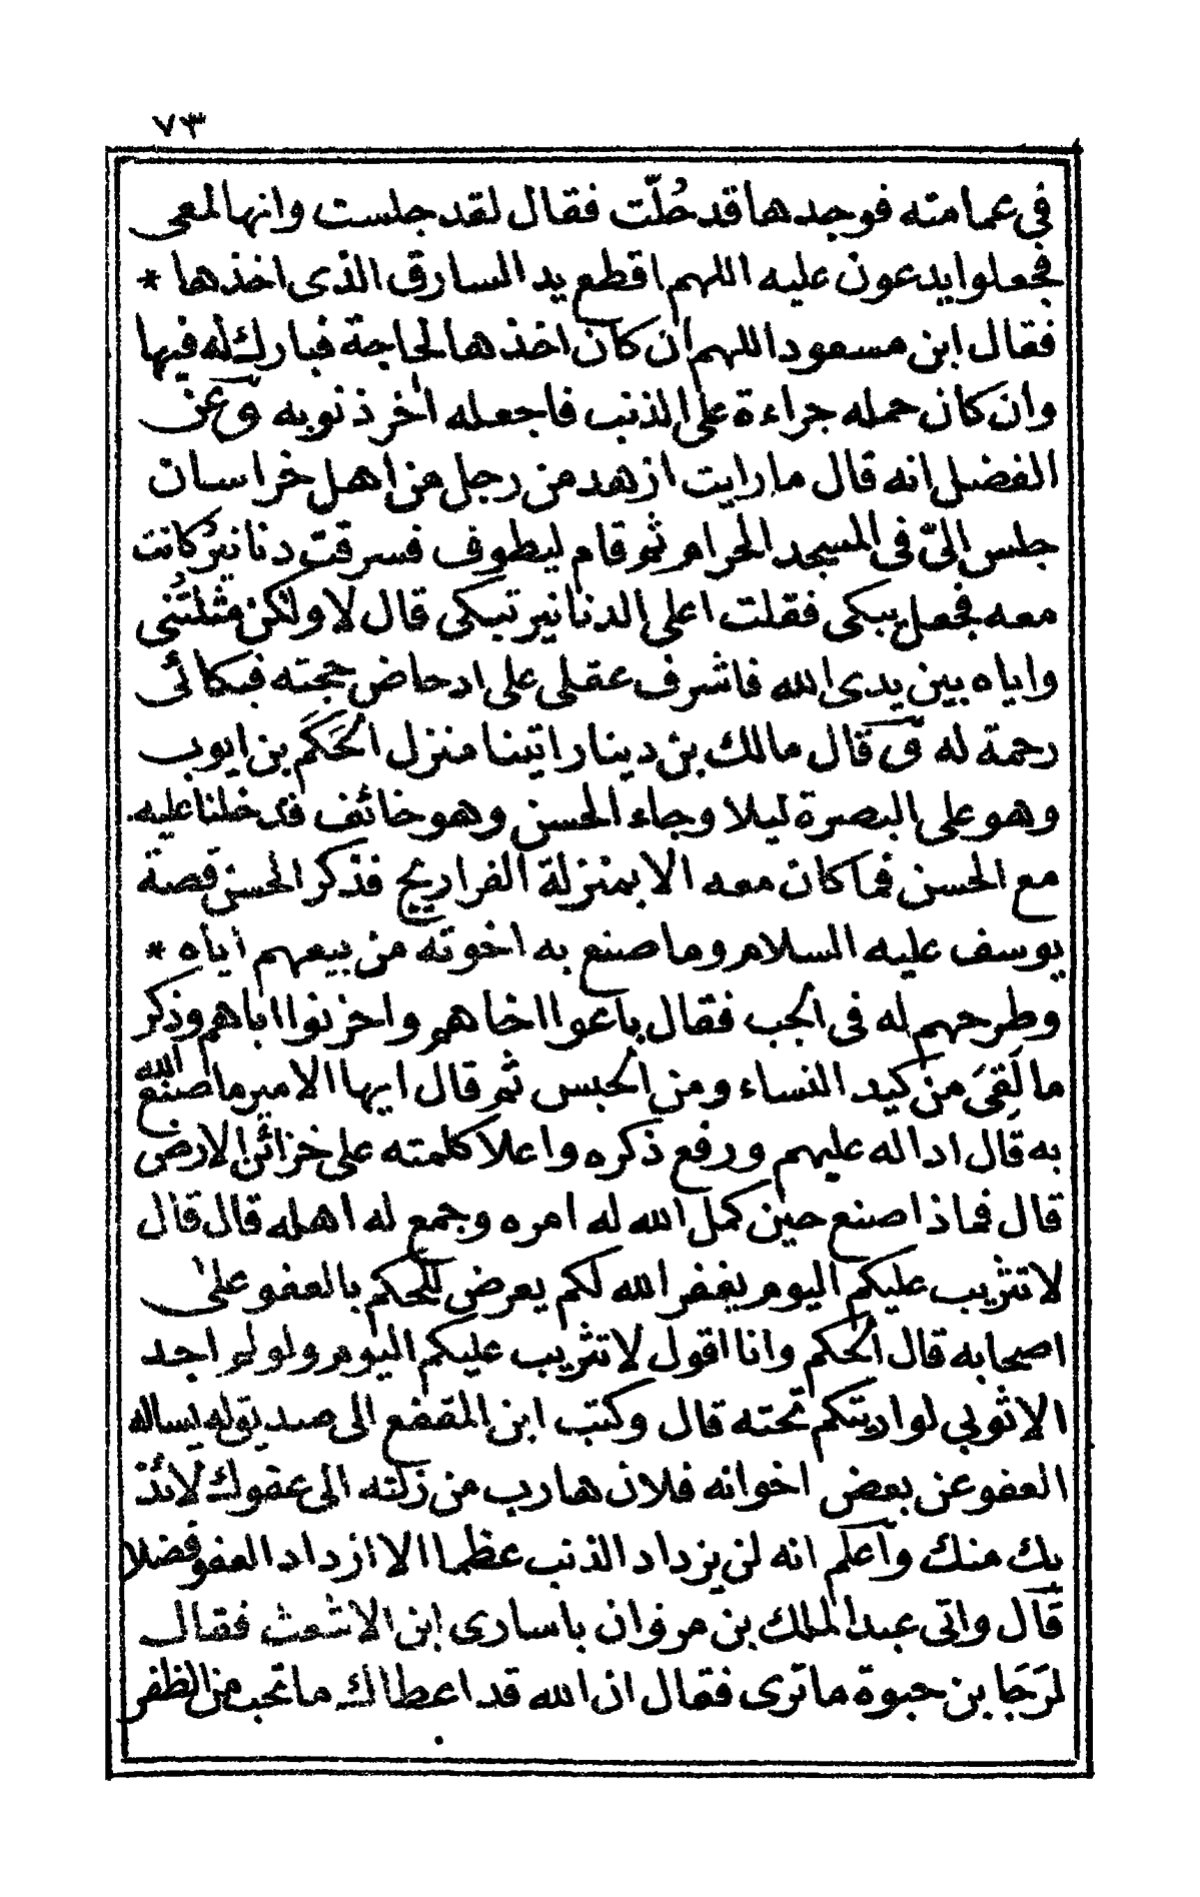 ٧٣
في عمامته فوجدها قد حُلّت فقال لقد جلست وانها لمعى
فجعلوا يدعون عليه اللهم اقطع يد السارق الذى اخذها *
فقال ابن مسعود اللهم ان كان اخذها لحاجة فبارك له فيها
وان كان حمله جراءة على الذنب فاجعله اٰخر ذنوبه وعن
الفضل انه قال ما رايت ازهد من رجل من اهل خراسان
جلس اليّ فى المسجد الحرام ثم قام ليطوف فسرقت دنانيرُ كانت
معه فجعل يبكى فقلت اعلى الدنانير تبكى قال لا ولكن مثلتُنى
واياه بين يدى الله فاشرف عقلى على ادحاض حجته فبكائى
رحمة له وقال مالك بن دينار اتينا منزل الحَكَم بن ايوب
وهو على البصرة ليلا وجاء الحسن وهو خائف فدخلنا عليه
مع الحسن فما كان معه الا بمنزلة الفراريج فذكر الحسن قصة
يوسف عليه السلام وما صنع به اخوته من بيعهم اياه *
وطرحهم له فى الجب فقال باعوا اخاهم واحزنوا اباهم وذكر
ما لَقِىَ من كيد النساء ومن الحبس ثم قال ايها الامير ما صنع الله
به قال اداله عليهم ورفع ذكره واعلا كلمته على خزائن الارض
قال فماذا صنع حين كمل الله له امره وجمع له اهله قال قال
لا تثريب عليكم اليوم يغفر الله لكم يعرض للحكم بالعفو على
اصحابه قال الحكم وانا اقول لا تثريب عليكم اليوم ولو لم اجد
الا ثوبي لواريتكم تحته قال وكتب ابن المقفع الى صديق له يساله
العفو عن بعض اخوانه فلان هارب من زلته الى عفوك لائذ
بك منك واعلم انه لن يزداد الذنب عظما الا ازداد العفو فضلا
قال واتى عبد الملك بن مروان باسارى ابن الاشعث فقال
لرَجَا بن حيوة ما ترى فقال ان الله قد اعطاك ما تحب من الظفر